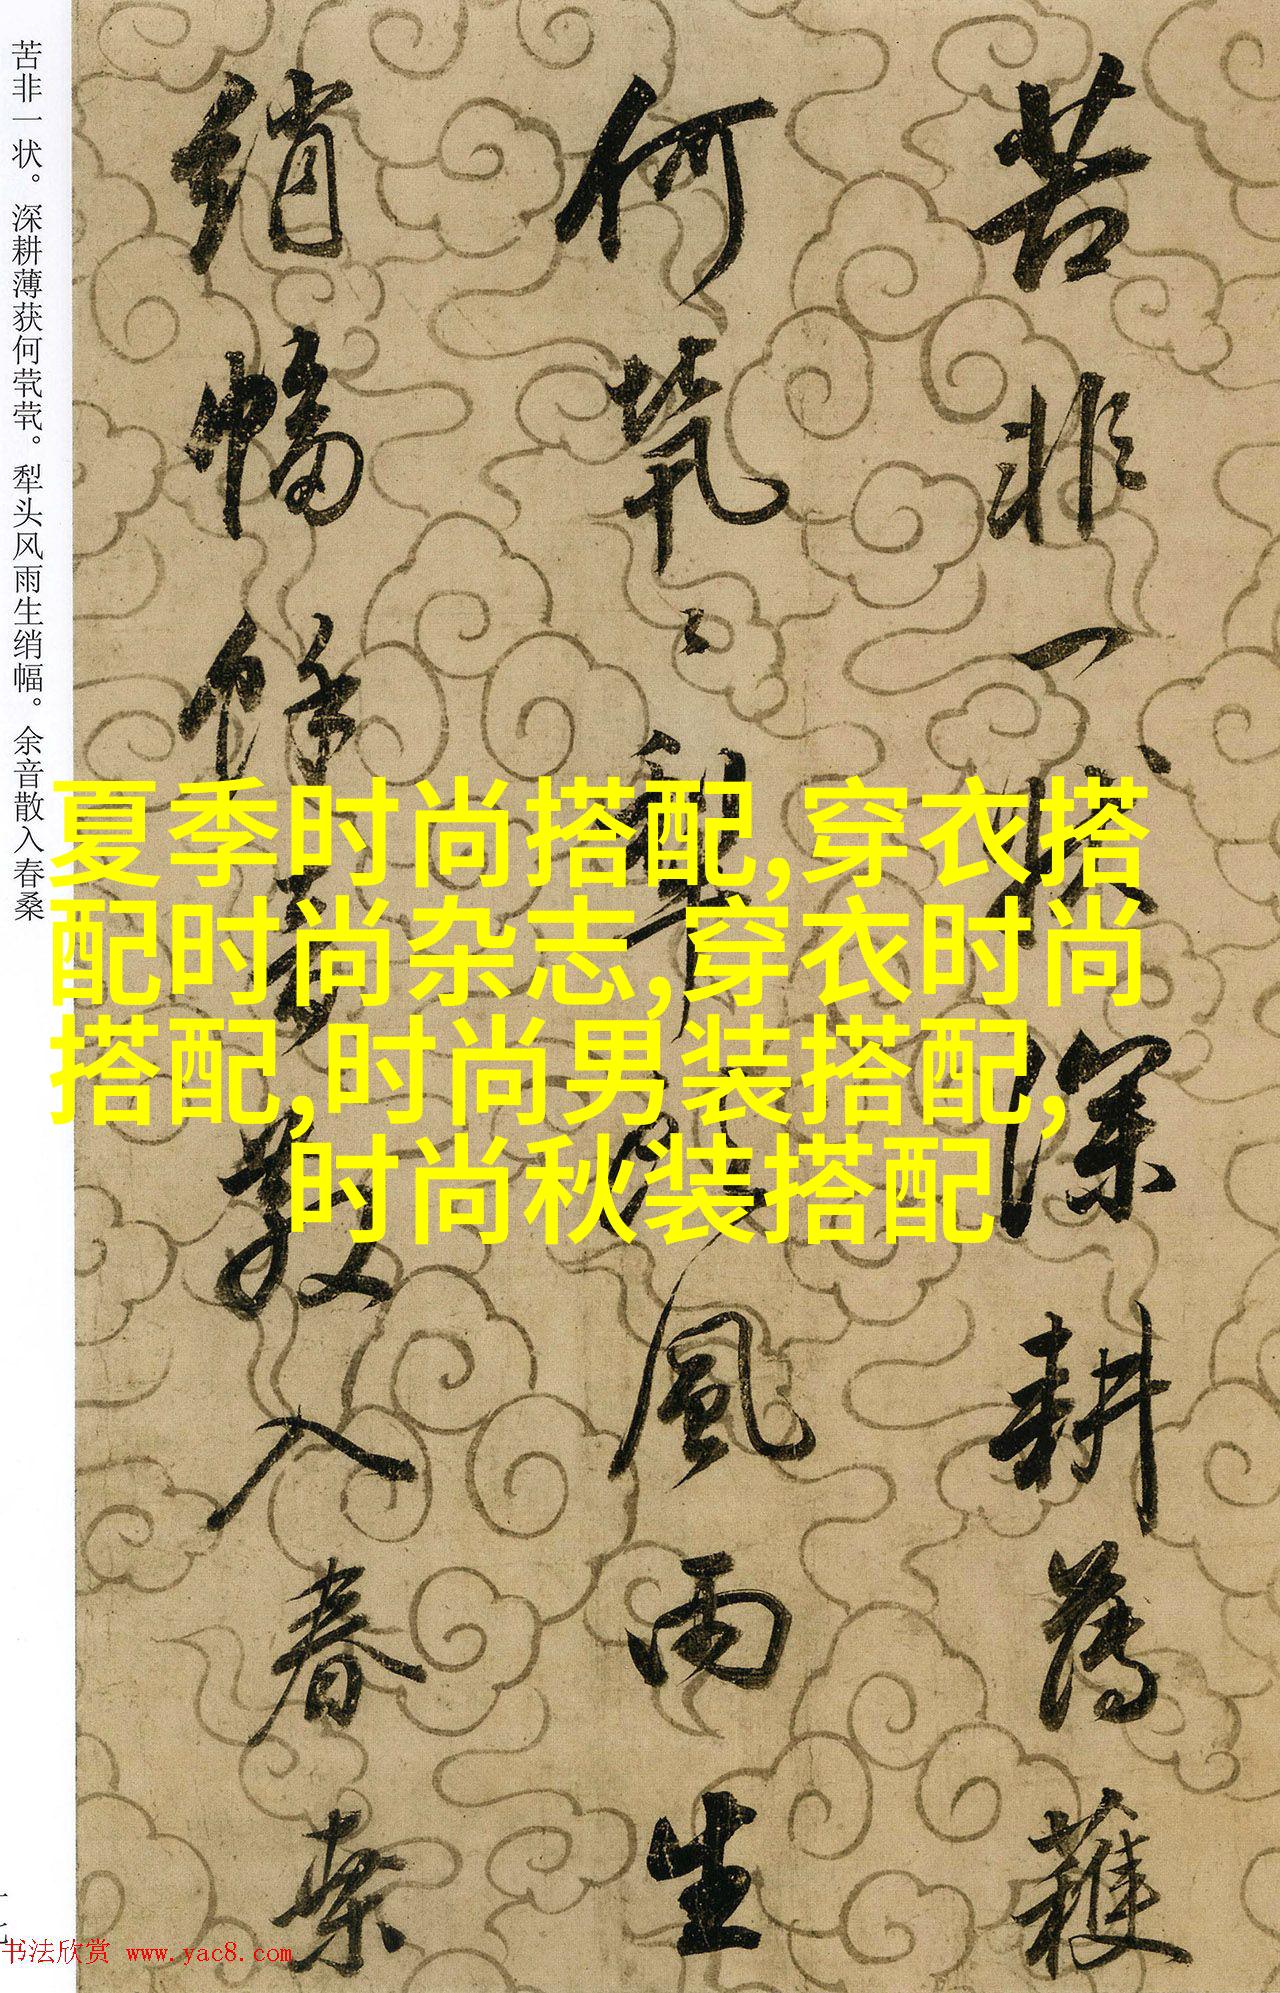 苦非一狀深耕薄穫
何煢々犁頭風雨生
綃幅餘音散入春桑
苦非一状。深耕薄获何茕茕。犁头风雨生绡幅。余音散入春桑
夏季时尚搭配,穿衣搭
配时尚杂志,穿衣时尚
搭配,时尚男装搭配,
时尚秋装搭配
书法欣赏 www.yac8.com